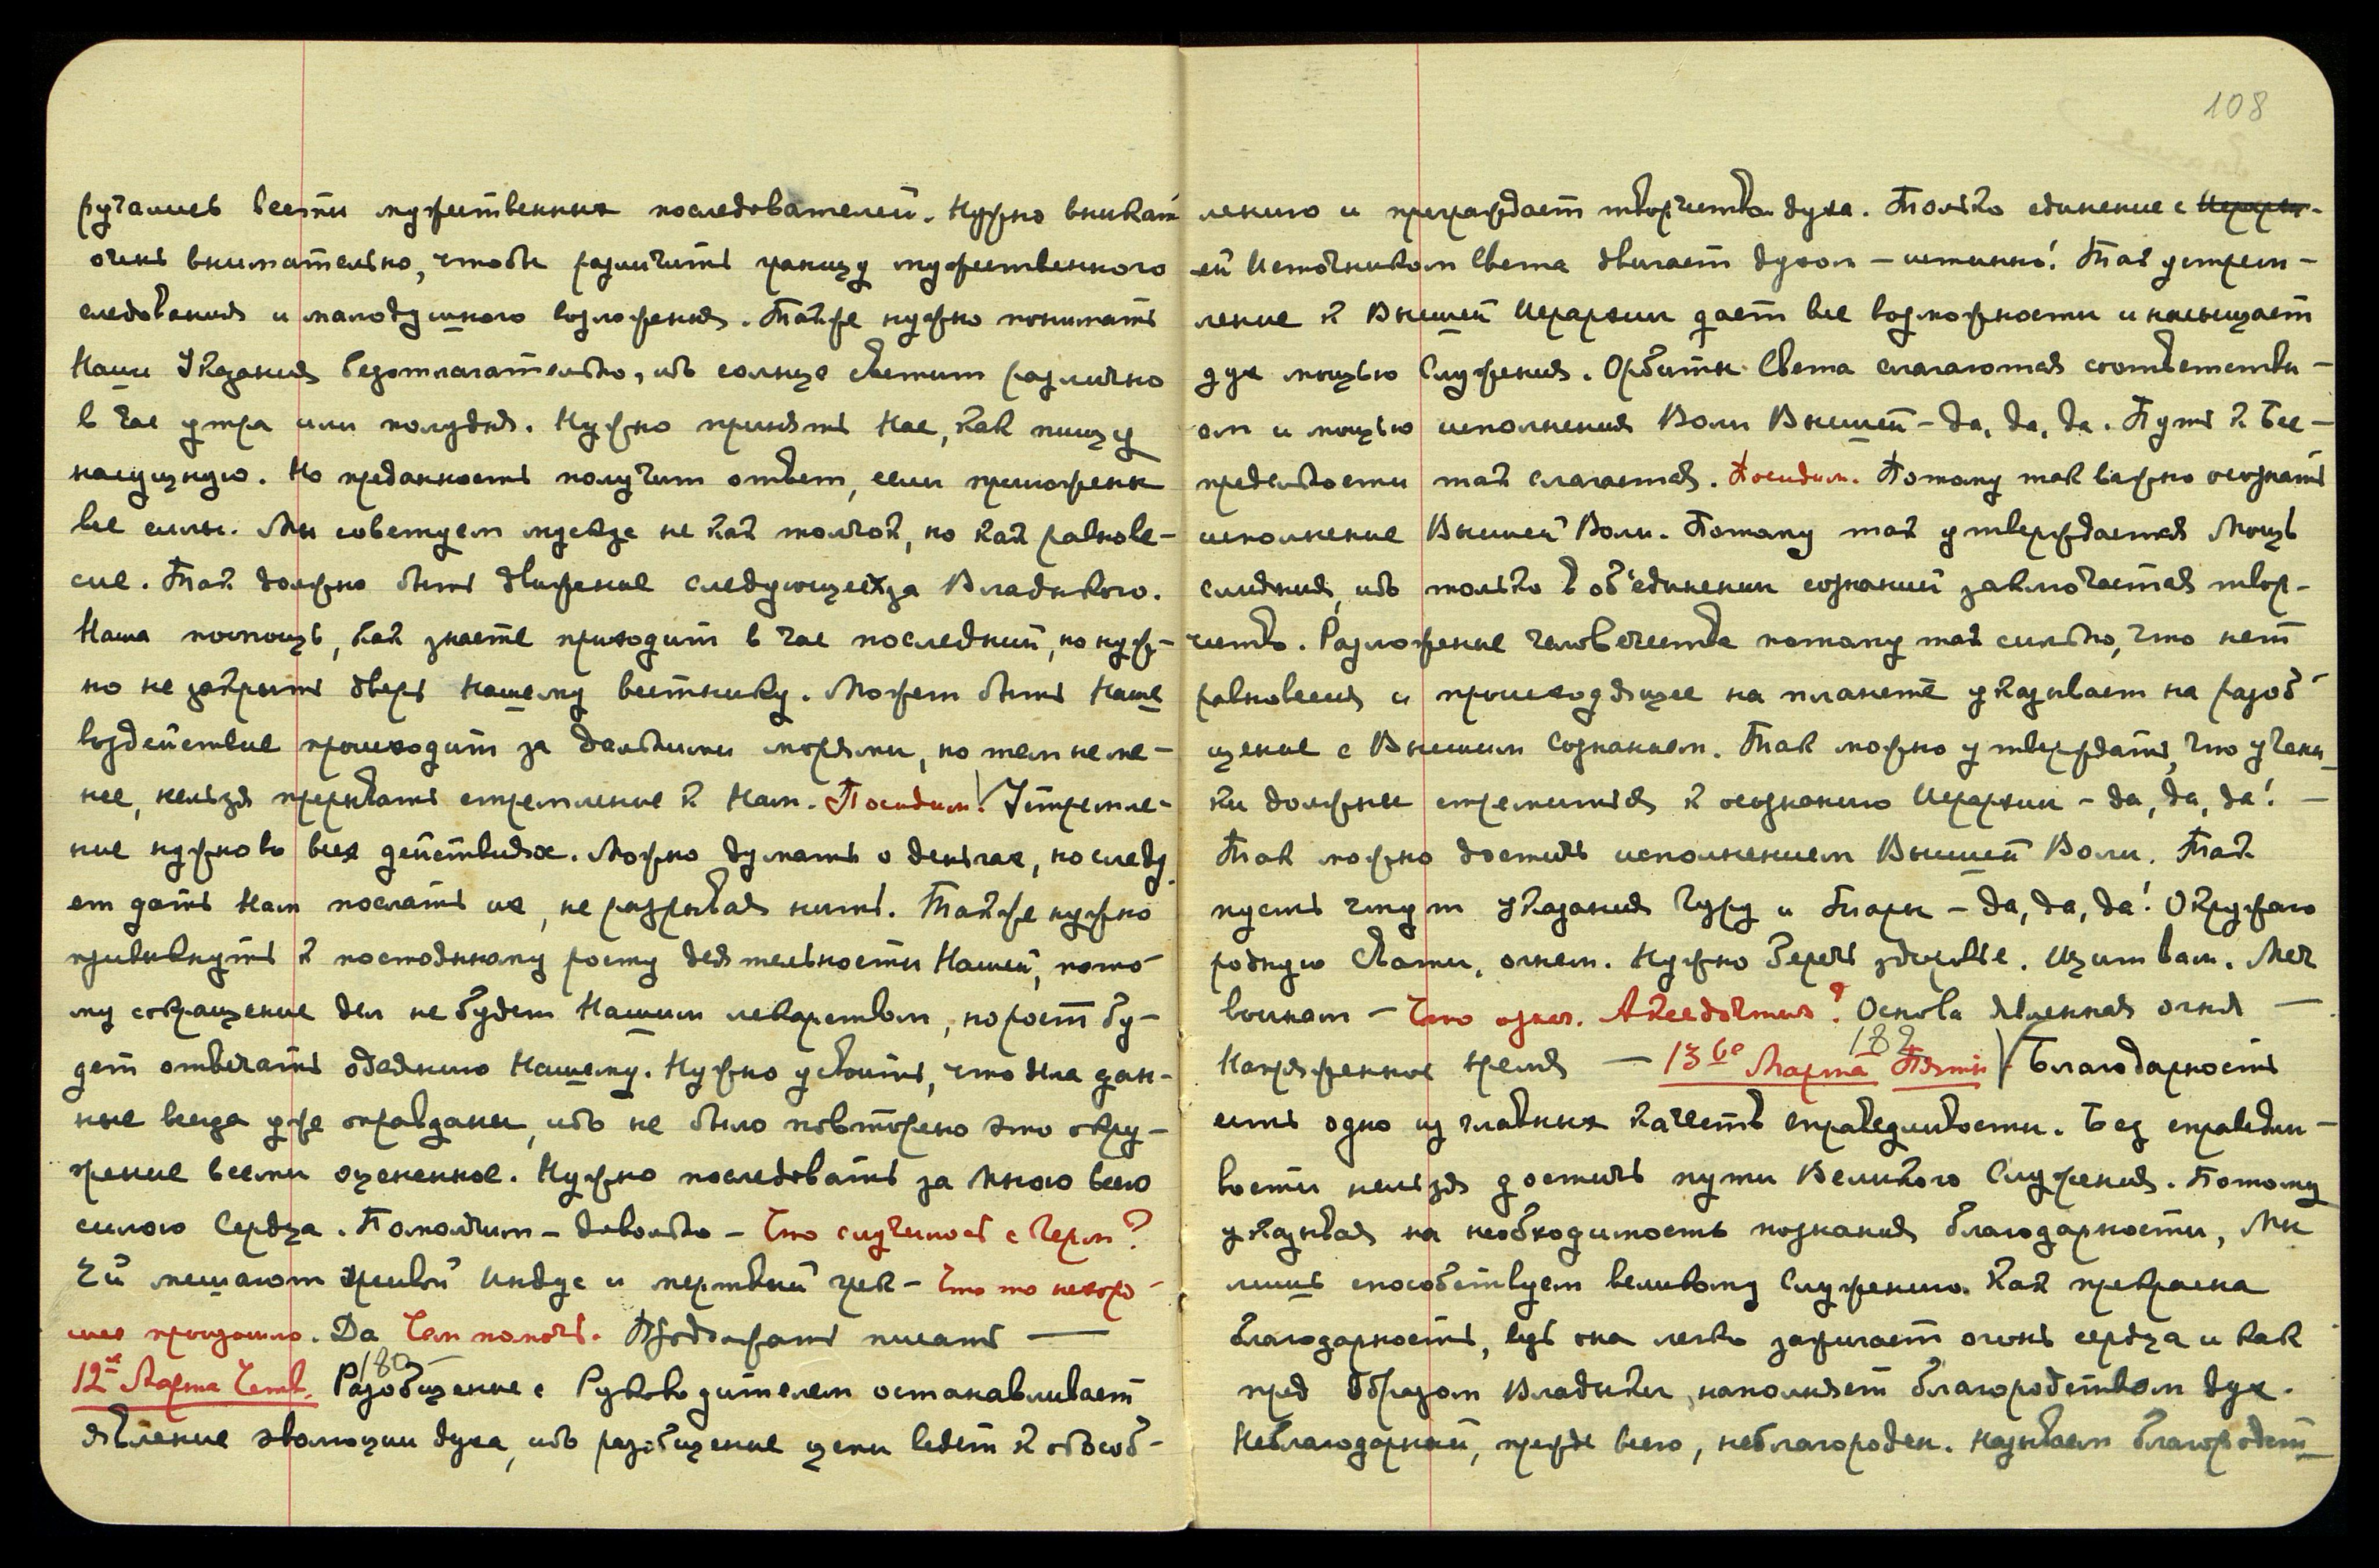 ручались вести мужественных последователей. Нужно вникать
очень внимательно, чтобы различить границу мужественного
следования и малодушного возложения. Также нужно понимать
Наши Указания безотлагательно, ибо солнце светит различно
в час утра или полудня. Нужно принять Нас, как пищу
насущную. Но преданность получит ответ, если приложены
все силы. Мы советуем мускус не как толчок, но как равнове-
сие. Так должно быть движение следующих за Владыкою.
Наша помощь, как знаете приходит в час последний, но нуж-
но не закрыть дверь Нашему вестнику. Может быть Наше
воздействие происходит за дальними морями, но тем не ме-
нее, нельзя прерывать стремление к Нам. Посидим. Устремле-
ние нужно во всех действиях. Можно думать о деньгах, но следу
ет дать Нам послать их, не разрывая нить. Также нужно
привыкнуть к постоянному росту деятельности Нашей, пото
му сокращение дел не будет Нашим лекарством, но рост бу-
дет отвечать одеянию Нашему. Нужно усвоить, что дела дан-
ные всегда уже оправданы, ибо не было повторено это окру-
жение всеми оцененное. Нужно последовать за Мною всею
силою Сердца. Помолчим - довольно - Что случилось с Черм?
Ей мешают живой индус и мертвый грек - Что то нехоро-
шее произошло. Да Чем помочь. Продолжать писать —
180
12е Марта Четв. Разобщение с Руководителем останавливает
явление эволюции духа, ибо разобщение цепи ведет к обособ-
108
лению и преграждает творчество духа. Только единение с Иерарх-
ей Источником Света двигает духом - истинно! Так устрем-
ление к Высшей Иерархии дает все возможности и насыщает
дух мощью Служения. Орбиты Света слагаются соответстви-
ем и мощью исполнения Воли Высшей - да, да, да. Путь к Бес-
предельности так слагается. Посидим. Потому так важно осознать
исполнение Высшей Воли. Потому так утверждается Мощь
слияния, ибо только в об'единении сознаний заключается твор-
чество. Разложение человечества потому так сильно, что нет
равновесия и происходящее на планете указывает на разоб
щение с Высшим Сознанием. Так можно утверждать, что учени
ки должны стремиться к осознанию Иерархии - да, да, да! —
Так можно достичь исполнением Высшей Воли. Так
пусть чтут указания Гуру и Тары - да, да, да! Окружаю
родную Свати, огнем. Нужно беречь здоровье. Щит вам. Меч
воинам - Что означ. ? Основа явленная огня —
Напряженное время — 182
13го Марта Пятн Благодарность
есть одно из главных качеств справедливости. Без справедли-
вости нельзя достичь пути Великого Служения. Потому
указывая на необходимость познания благодарности, Мы
лишь способствуем великому Служению. Как прекрасна
благодарность, ведь она легко зажигает огонь сердца и как
пред Образом Владыки, наполняет благородством дух.
Неблагодарный, прежде всего, неблагороден. Называем благородст